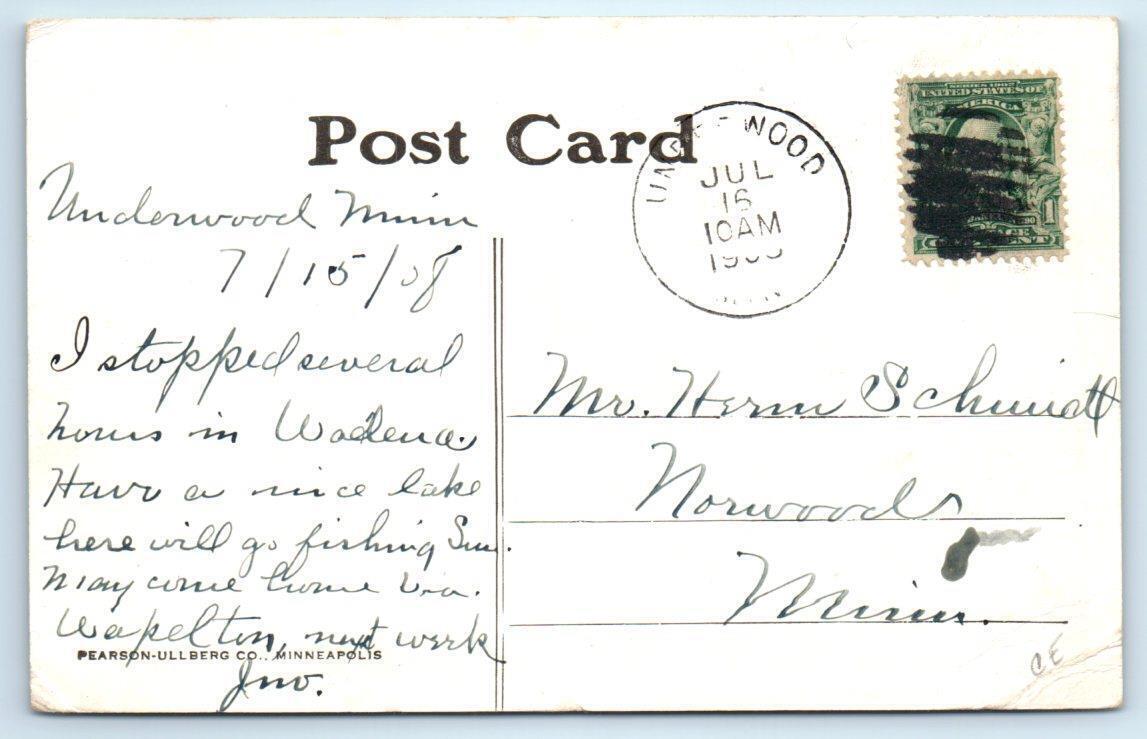 Post Card
UNDERWOOD
JUL
16
10AM
1908
MINN
SERIES 1902
UNITED STATES OF
AMERICA
1
Underwood Minn
7/15/08
I stopped several
hours in Wadena.
Have a nice lake
here will go fishing Sun.
May come home via.
Wapelton, next week
Jno.
PEARSON-ULLBERG CO., MINNEAPOLIS
Mr. Herm Schmidt
Norwood
Minn.
CE